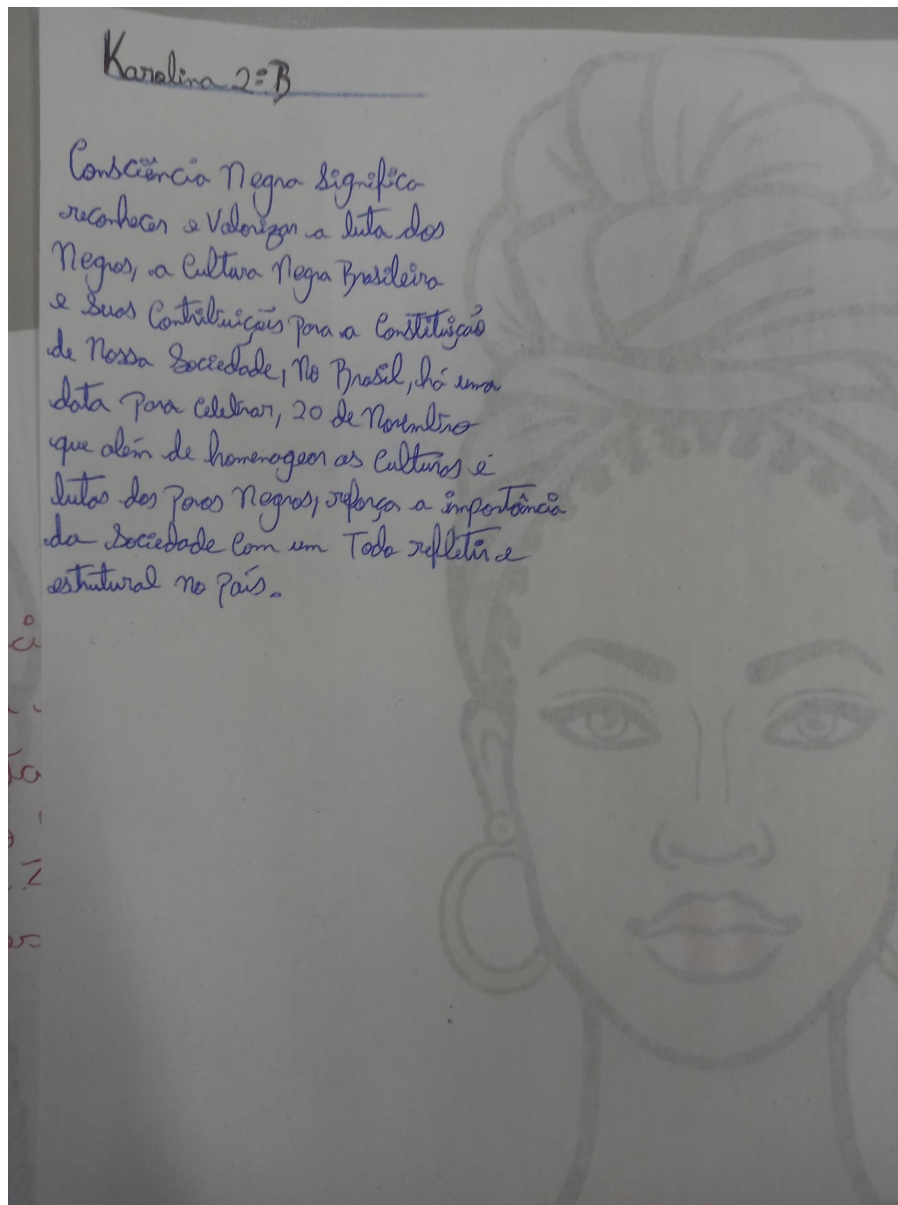 Karolina 2º B
Consciência Negra Significa
reconhecer e Valorizar a luta dos
Negros, a Cultura Negra Brasileira
e Suas Contribuições para a Constituição
de Nossa Sociedade, No Brasil, há uma
data para Celebrar, 20 de Novembro
que além de homenagear as Culturas é
lutas dos Povos Negros, reforça a importância
da Sociedade Com um Todo refletir e
estrutural no país.